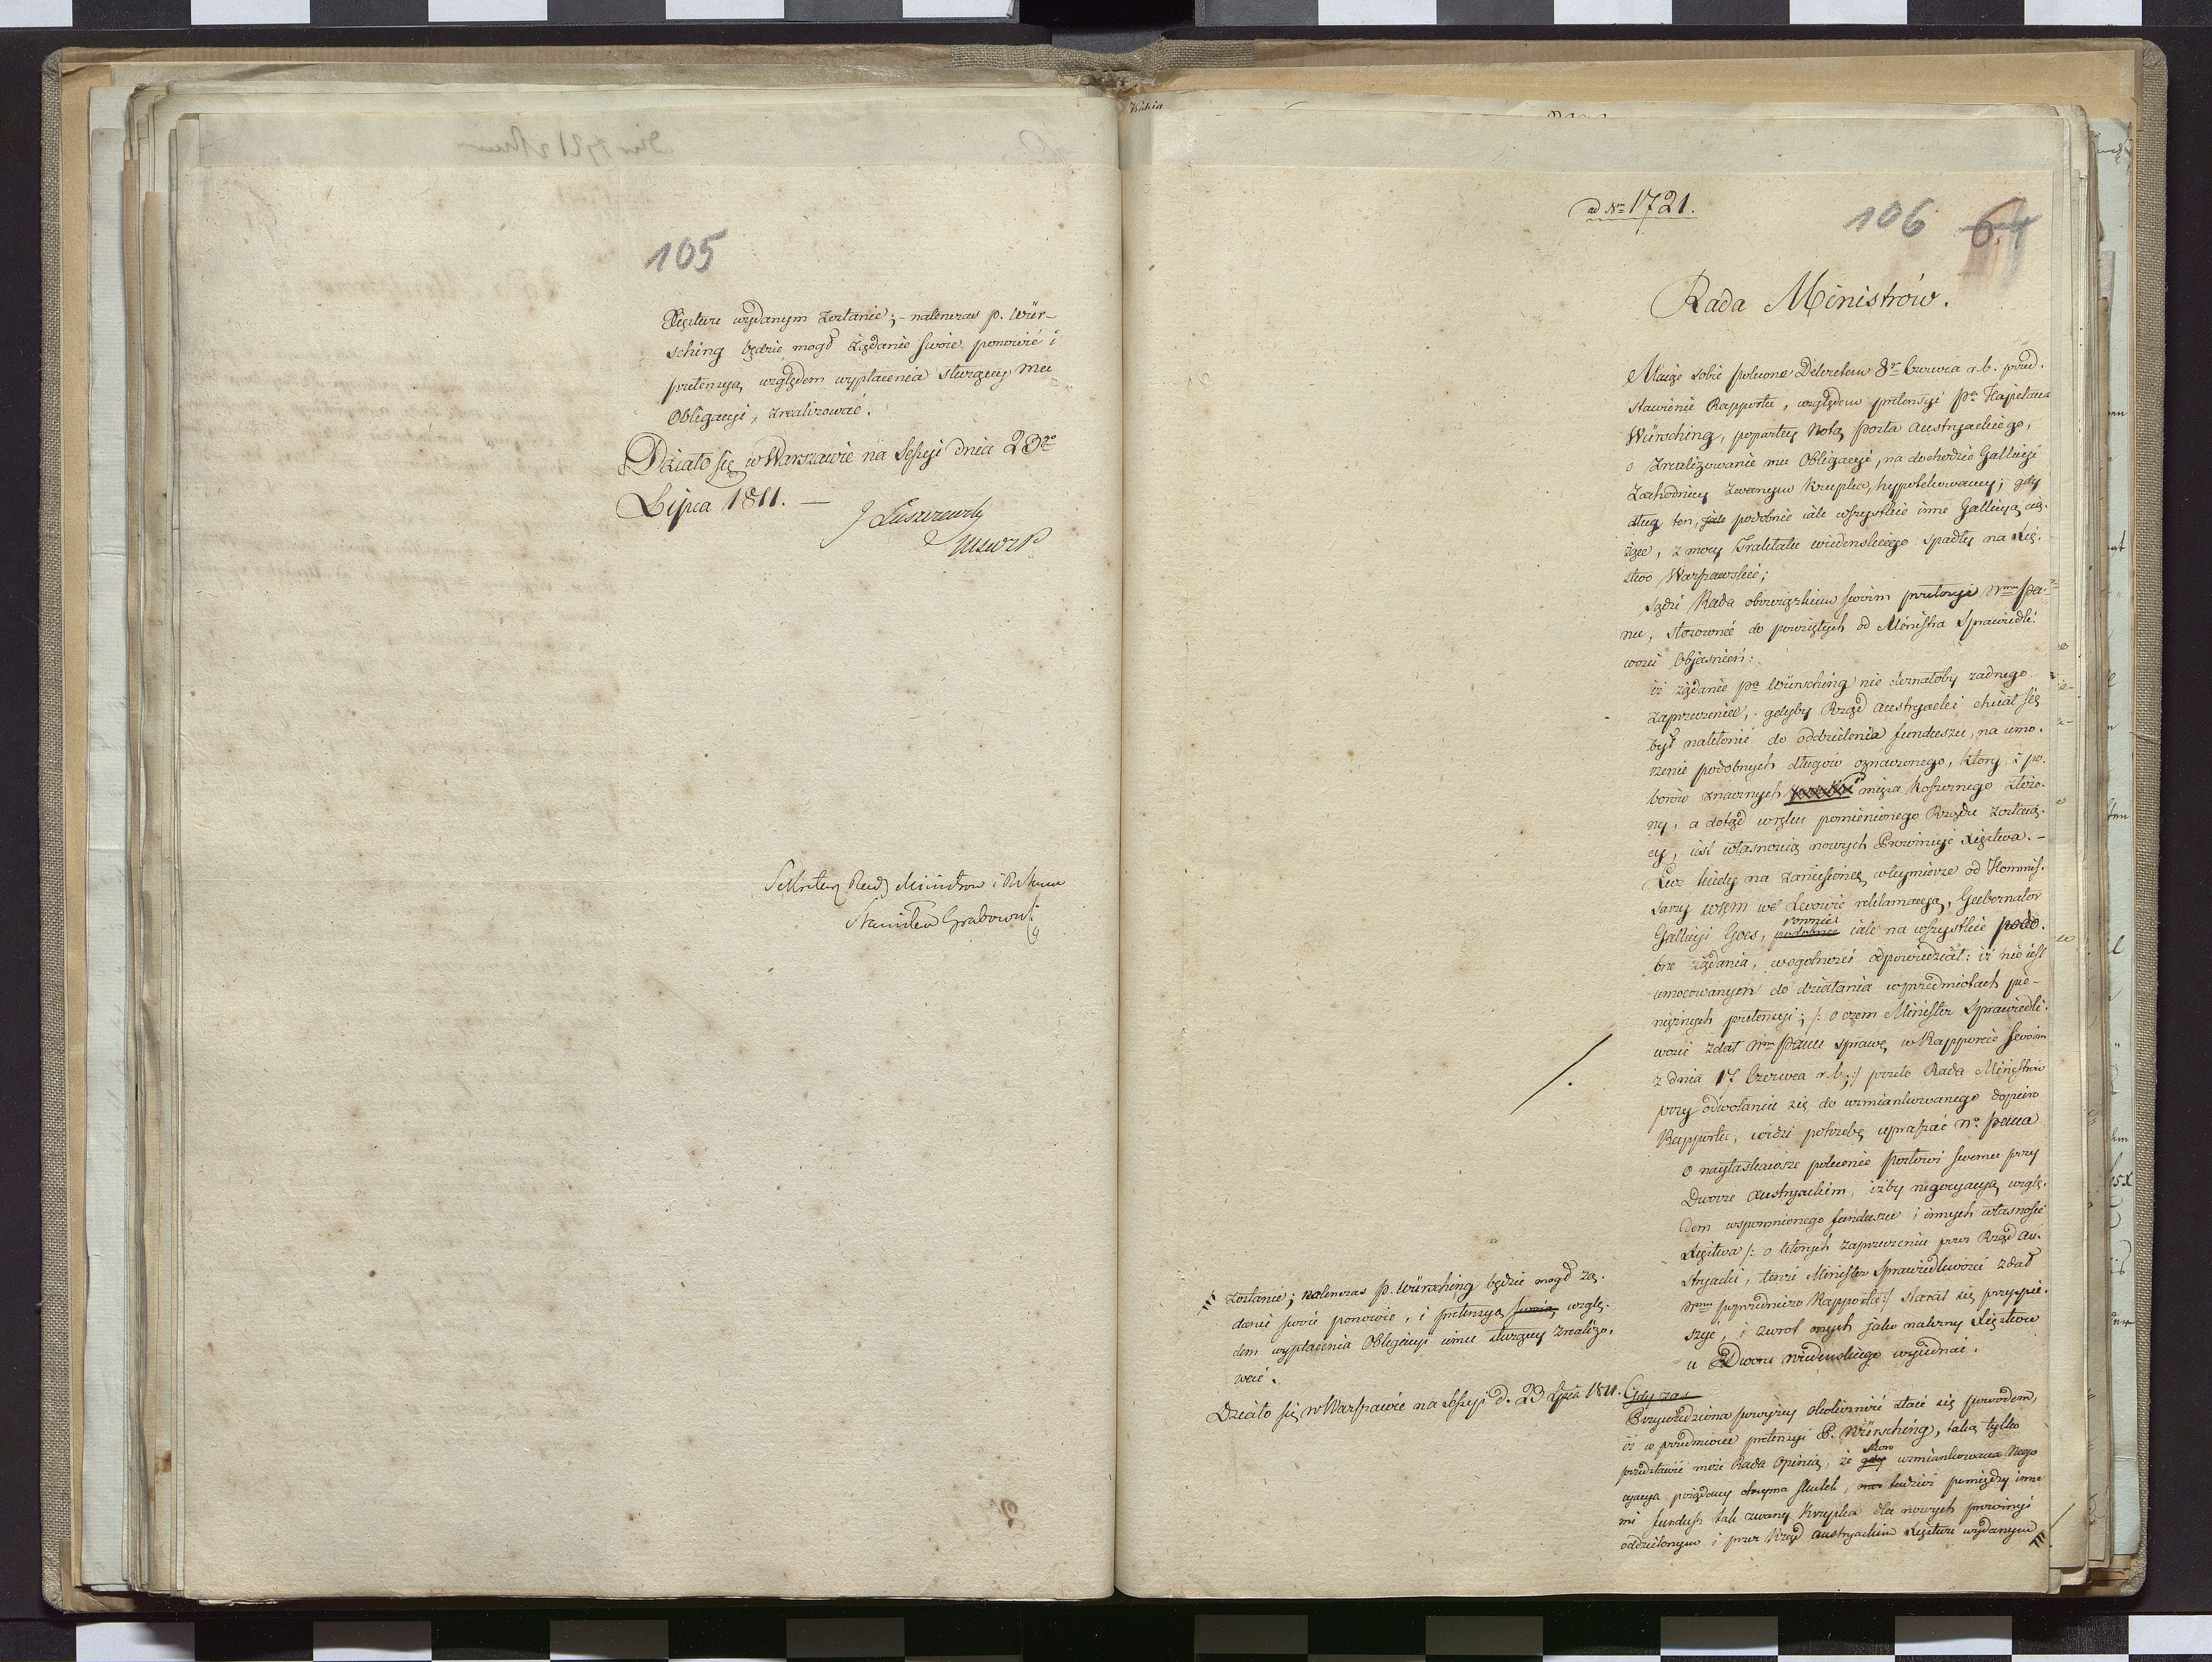 105
Xięztwu wydanym zostanie; – natenczas p. Wür-
sching będzie mogł żądanie swoie ponowić i
pretensyą względem wypłacenia służącey mu
Obligacyi, zrealizować.
Działo się w Warszawie na Sessyi dnia 23go
Lipca 1811. –
J Łuszczewski
Sekretarz Rady Ministrów i R. Stanu
Stanisław Grabowski
ad Nm 1721.
106 64
Rada Ministrów.
Maiąc sobie polecone Dekretem 8go Czerwca r.b. przed-
stawienie Rapportu, względem pretensyi Pa Kapitana
Würsching, popartey Notą posła Austryackiego,
o zrealizowanie mu Obligacyi, na dochodzie Gallicyi
Zachodniey zwanym Krupka, hypotekowaney; gdy
dług ten, jako podobnie iak wszystkie inne Gallicyą cią-
żące, z mocy Traktatu wiedenskiego spadły na Xię-
stwo Warszawskie;
Sądzi Rada obowiązkiem swoim przełożyć Nmu Pa-
nu, stosownie do powziętych od Ministra Sprawiedli-
wości Objasnień:
iż żądanie pa Würsching nie doznałoby żadnego
zaprzeczenia, gdyby Rząd Austryacki chciał się
był nakłonić do oddzielenia funduszu, na umo-
rzenie podobnych długów oznaczonego, ktory z po-
borów znacznych mięsa koszernego złożo-
ny, a dotąd w ręku pomienionego Rządu zostaią-
cy, iest własnością nowych Prowincyi Xięztwa. –
Lecz kiedy na zaniesioną w teymierze od Kommis-
sarzy WXM we Lwowie reklamacyą, Gubernator
Gallicyi Goes, podobnie rownież iak na wszystkie podo-
bne żądania, w ogolności odpowiedział: iż nie iest
umocowanym do działania w przedmiotach pie-
niężnych pretensyi; /: o czem Minister Sprawiedli-
wości zdał Nmu Panu sprawę w Rapporcie swoim
z dnia 17 Czerwca r.b.;:/ przeto Rada Ministrów
przy odwołaniu się do wzmiankowanego dopiero
Rapportu, widzi potrzebę upraszać No Pana
o nayłaskawsze polecenie Posłowi swemu przy
Dworze Austryackim, iżby negocyacyą wzglę-
dem wspomnionego funduszu i innych własności
Xięztwa /: o ktorych zaprzeczeniu przez Rząd Au-
stryacki, tenże Minister Sprawiedliwości zdał
Nmu poprzedniczo Rapporta :/ starał się przyspie-
szyć, i zwrot onych jako należny Xięztwu
u Dworu Wiedenskiego wyiednać.
Gdy zaś
Przywiedziona powyżey okoliczność staie się powodem,
iż w przedmiocie pretensyi P. Würsching, taką tylko
przedstawić może Rada Opinią, że gdy skoro wzmiankowana Nego
cyacya pożądany otrzyma skutek, tudzież pomiędzy inne
mi fundusz tak zwany Krupka dla nowych prowincyi
oddzielonym i przez Rząd Austryacki Xięztwu wydanym
zostanie; natenczas p. Würsching będzie mogł żą-
danie swoie ponowić, i pretensyą swoią wzglę-
dem wypłacenia Obligacyi iemu służącey zrealizo-
wać.
Działo się w Warszawie na Sessyi d. 23 Lipca 1811.